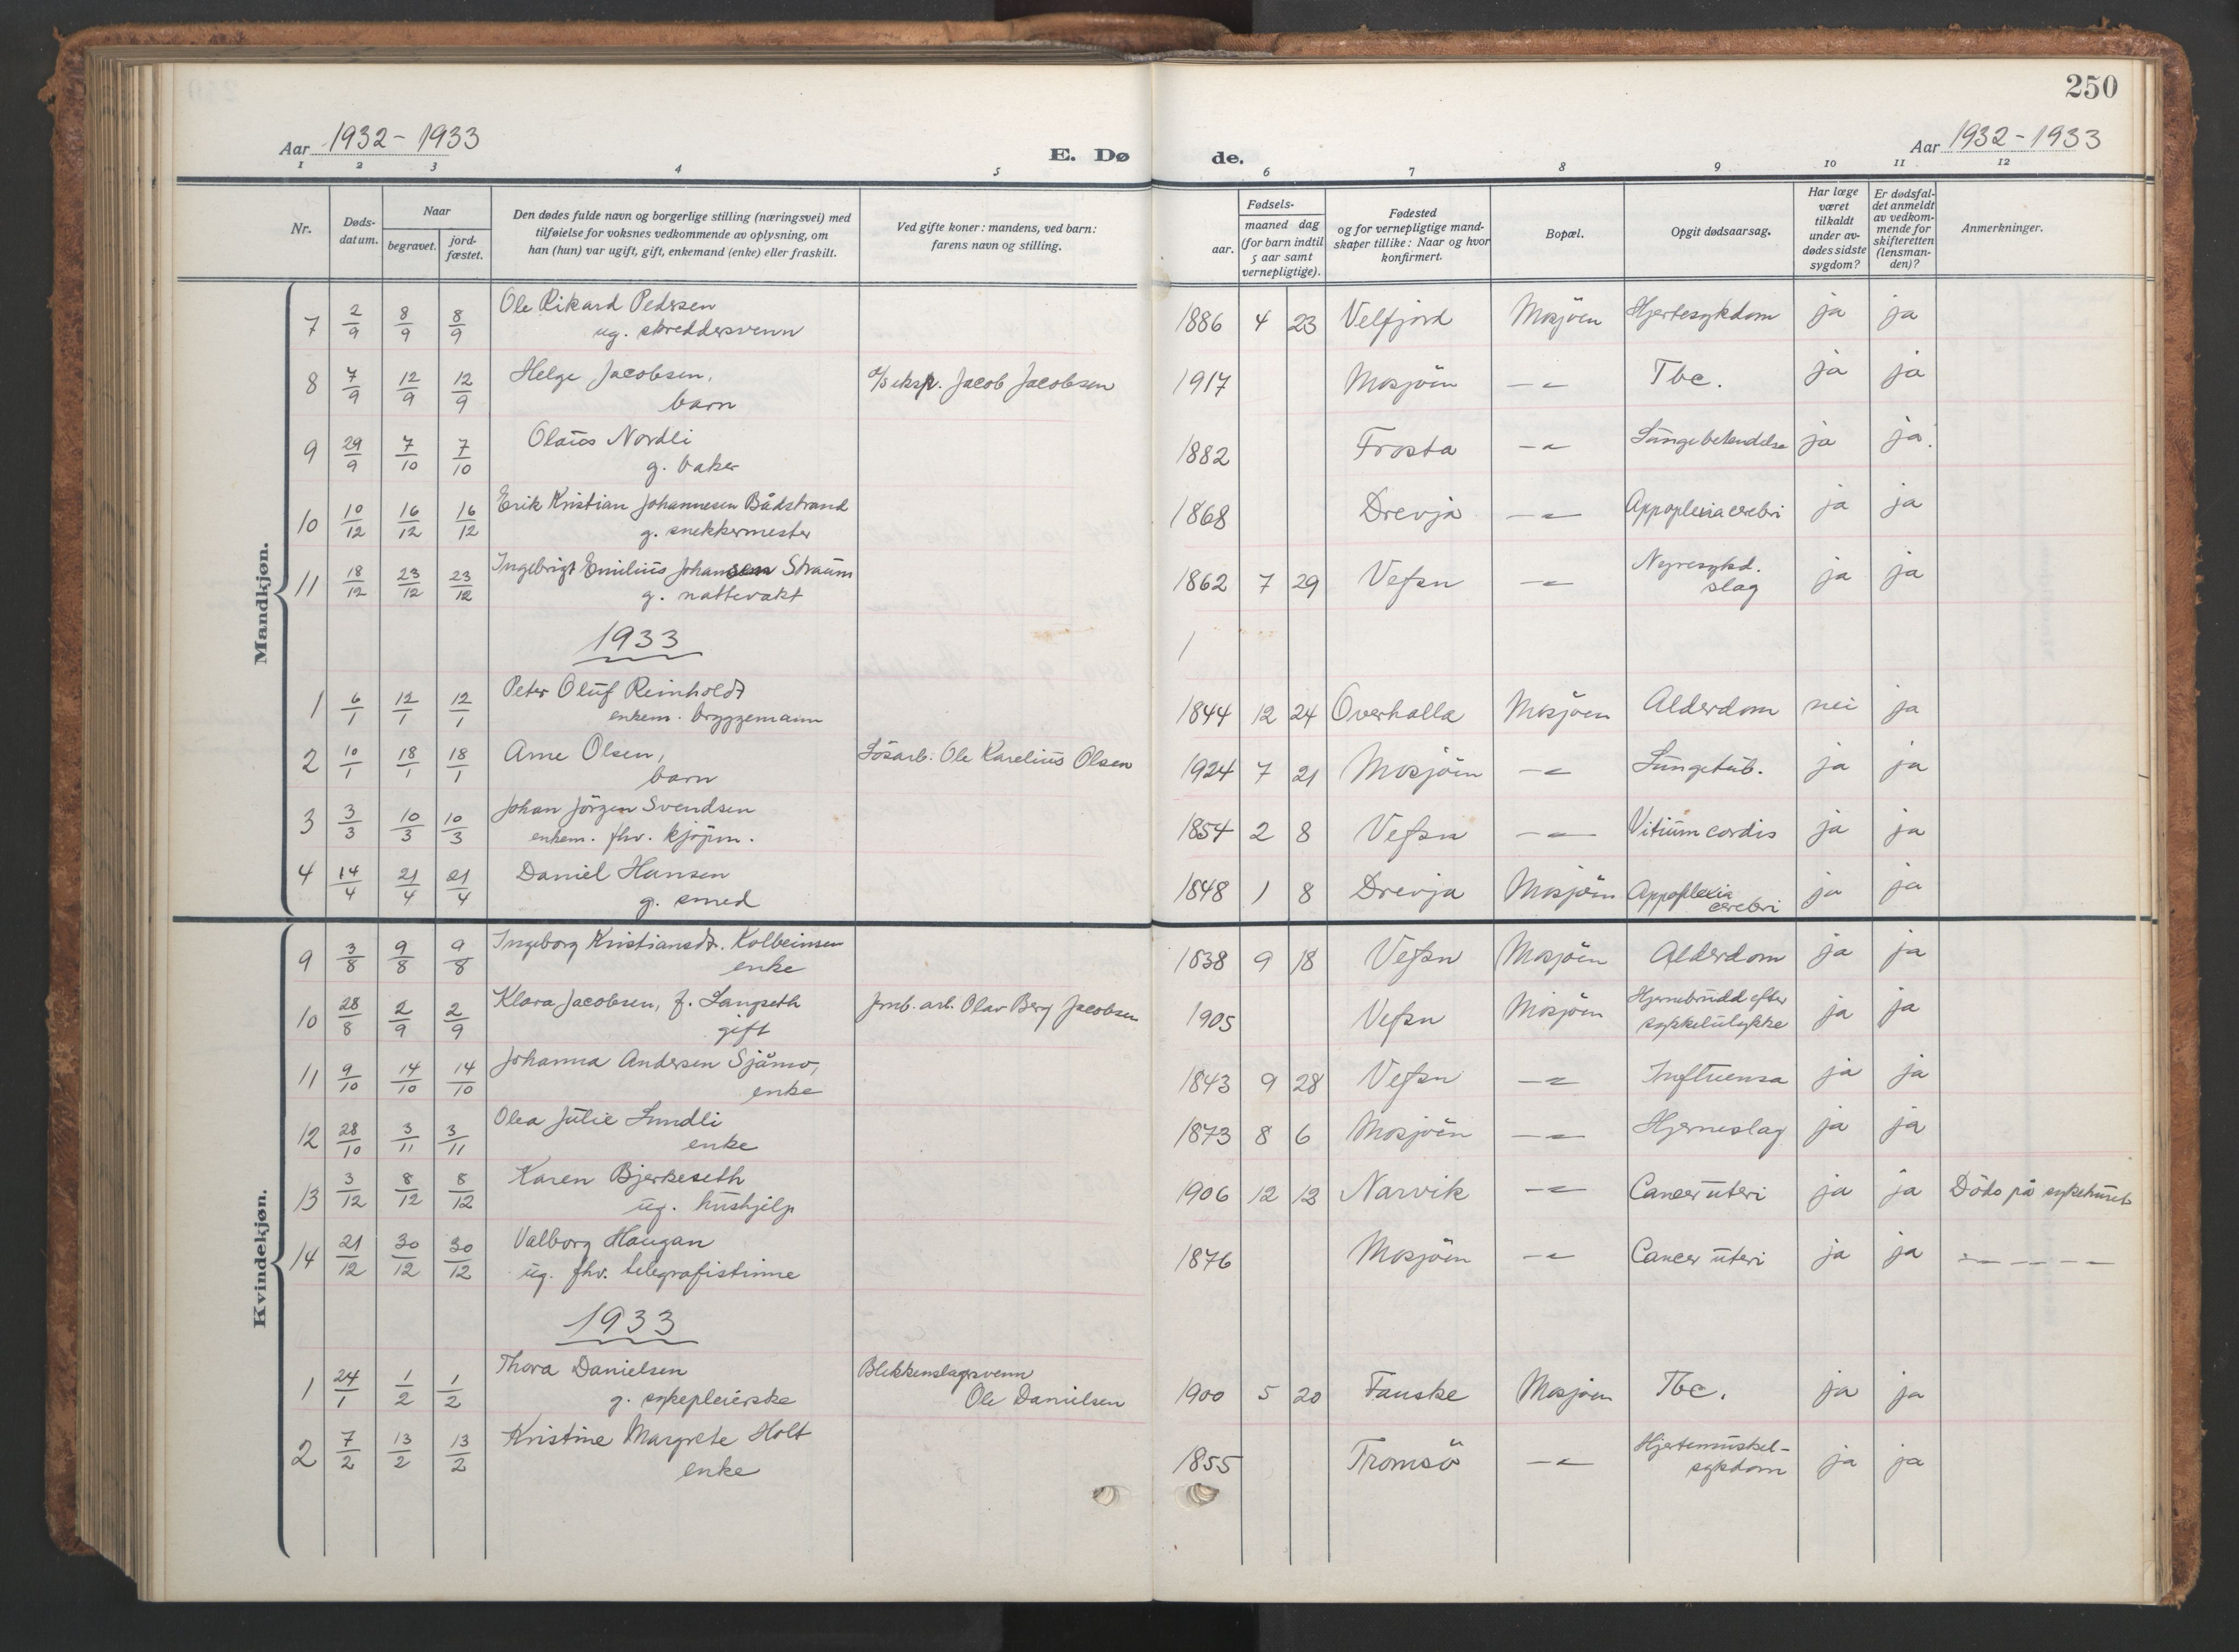 250
Aar 1932-1933
E. Dø
de.
Aar 1932-1933
1 2 3 4 5 6 7 8 9 10 11 12
Nr.
Døds-
datum.
Naar
begravet.
jord-
fæstet.
Den dødes fulde navn og borgerlige stilling (næringsvei) med
tilføielse for voksnes vedkommende av oplysning, om
han (hun) var ugift, gift, enkemand (enke) eller fraskilt.
Ved gifte koner: mandens, ved barn:
farens navn og stilling.
Fødsels-
aar.
maaned dag
(for barn indtil
5 aar samt
vernepligtige).
Fødested
og for vernepligtige mand-
skaper tillike: Naar og hvor
konfirmert.
Bopæl.
Opgit dødsaarsag.
Har læge
været
tilkaldt
under av-
dødes sidste
sygdom?
Er dødsfal-
det anmeldt
av vedkom-
mende for
skifteretten
(lensman-
den)?
Anmerkninger.
Mandkjøn.
7 2/9 8/9 8/9 Ole Rikard Pedersen
ug. skreddersvenn
1886 4 23 Velfjord Mosjöen Hjertesykdom ja ja
8 7/9 12/9 12/9 Helge Jacobsen,
barn
Jacob Jacobsen 1917 Mosjöen -"- Tbc. ja ja
9 29/9 7/10 7/10 Olaus Nordli
g. baker
1882 Frosta -"- Lungebetendelse ja ja.
10 10/12 16/12 16/12 Erik Kristian Johannesen Bådstrand
g. snekkermester
1868 Drevja -"- Appoplexia cerebri ja ja
11 18/12 23/12 23/12 Ingebrigt Emilius Johansen Straum
g. nattevakt
1862 7 29 Vefsn -"- Nyresykd.
slag
ja ja
1933
1 6/1 12/1 12/1 Peter Oluf Reinholdt
enkem. bryggemann
1844 12 24 Overhalla Mosjöen Alderdom nei ja
2 10/1 18/1 18/1 Arne Olsen,
barn
Lösarb. Ole Karelius Olsen 1924 7 21 Mosjöen -"- Lungetub. ja ja
3 3/3 10/3 10/3 Johan Jörgen Svendsen
enkem. fhv. kjöpm.
1854 2 8 Vefsn -"- Vitium cordis ja ja
4 14/4 21/4 21/4 Daniel Hansen
g. smed
1848 1 8 Drevja Mosjöen Appoplexia
cerebri
ja ja
Kvindekjøn.
9 3/8 9/8 9/8 Ingeborg Kristiansdt. Kolbeinsen
enke
1838 9 18 Vefsn Mosjöen Alderdom ja ja
10 28/8 2/9 2/9 Klara Jacobsen, f. Langseth
gift
Jernb. arb. Olav Berg Jacobsen 1905 Vefsn Mosjöen Hjernebrudd efter
sykkelulykke
ja ja
11 9/10 14/10 14/10 Johanna Andersen Sjåmo,
enke
1843 9 28 Vefsn -"- Influensa ja ja
12 28/10 3/11 3/11 Olea Julie Lundli
enke
1873 8 6 Mosjöen -"- Hjerneslag ja ja
13 3/12 8/12 8/12 Karen Bjerkeseth
ug. hushjelp
1906 12 13 Narvik -"- Cancer uteri ja ja Döde på sykehuset
14 21/12 30/12 30/12 Valborg Haugan
ug. fhv. telegrafistinne
1876 Mosjöen -"- Cancer uteri ja ja -"- - - -
1933
1 24/1 1/2 1/2 Thora Danielsen
g. sykepleierske
Blikkenslagersvenn
Ole Danielsen
1900 5 20 Fauske Mosjöen Tbc. ja ja
2 7/2 13/2 13/2 Kristine Margrete Holt
enke
1855 Tromsö -"- Hjertemuskel-
sykdom
ja ja